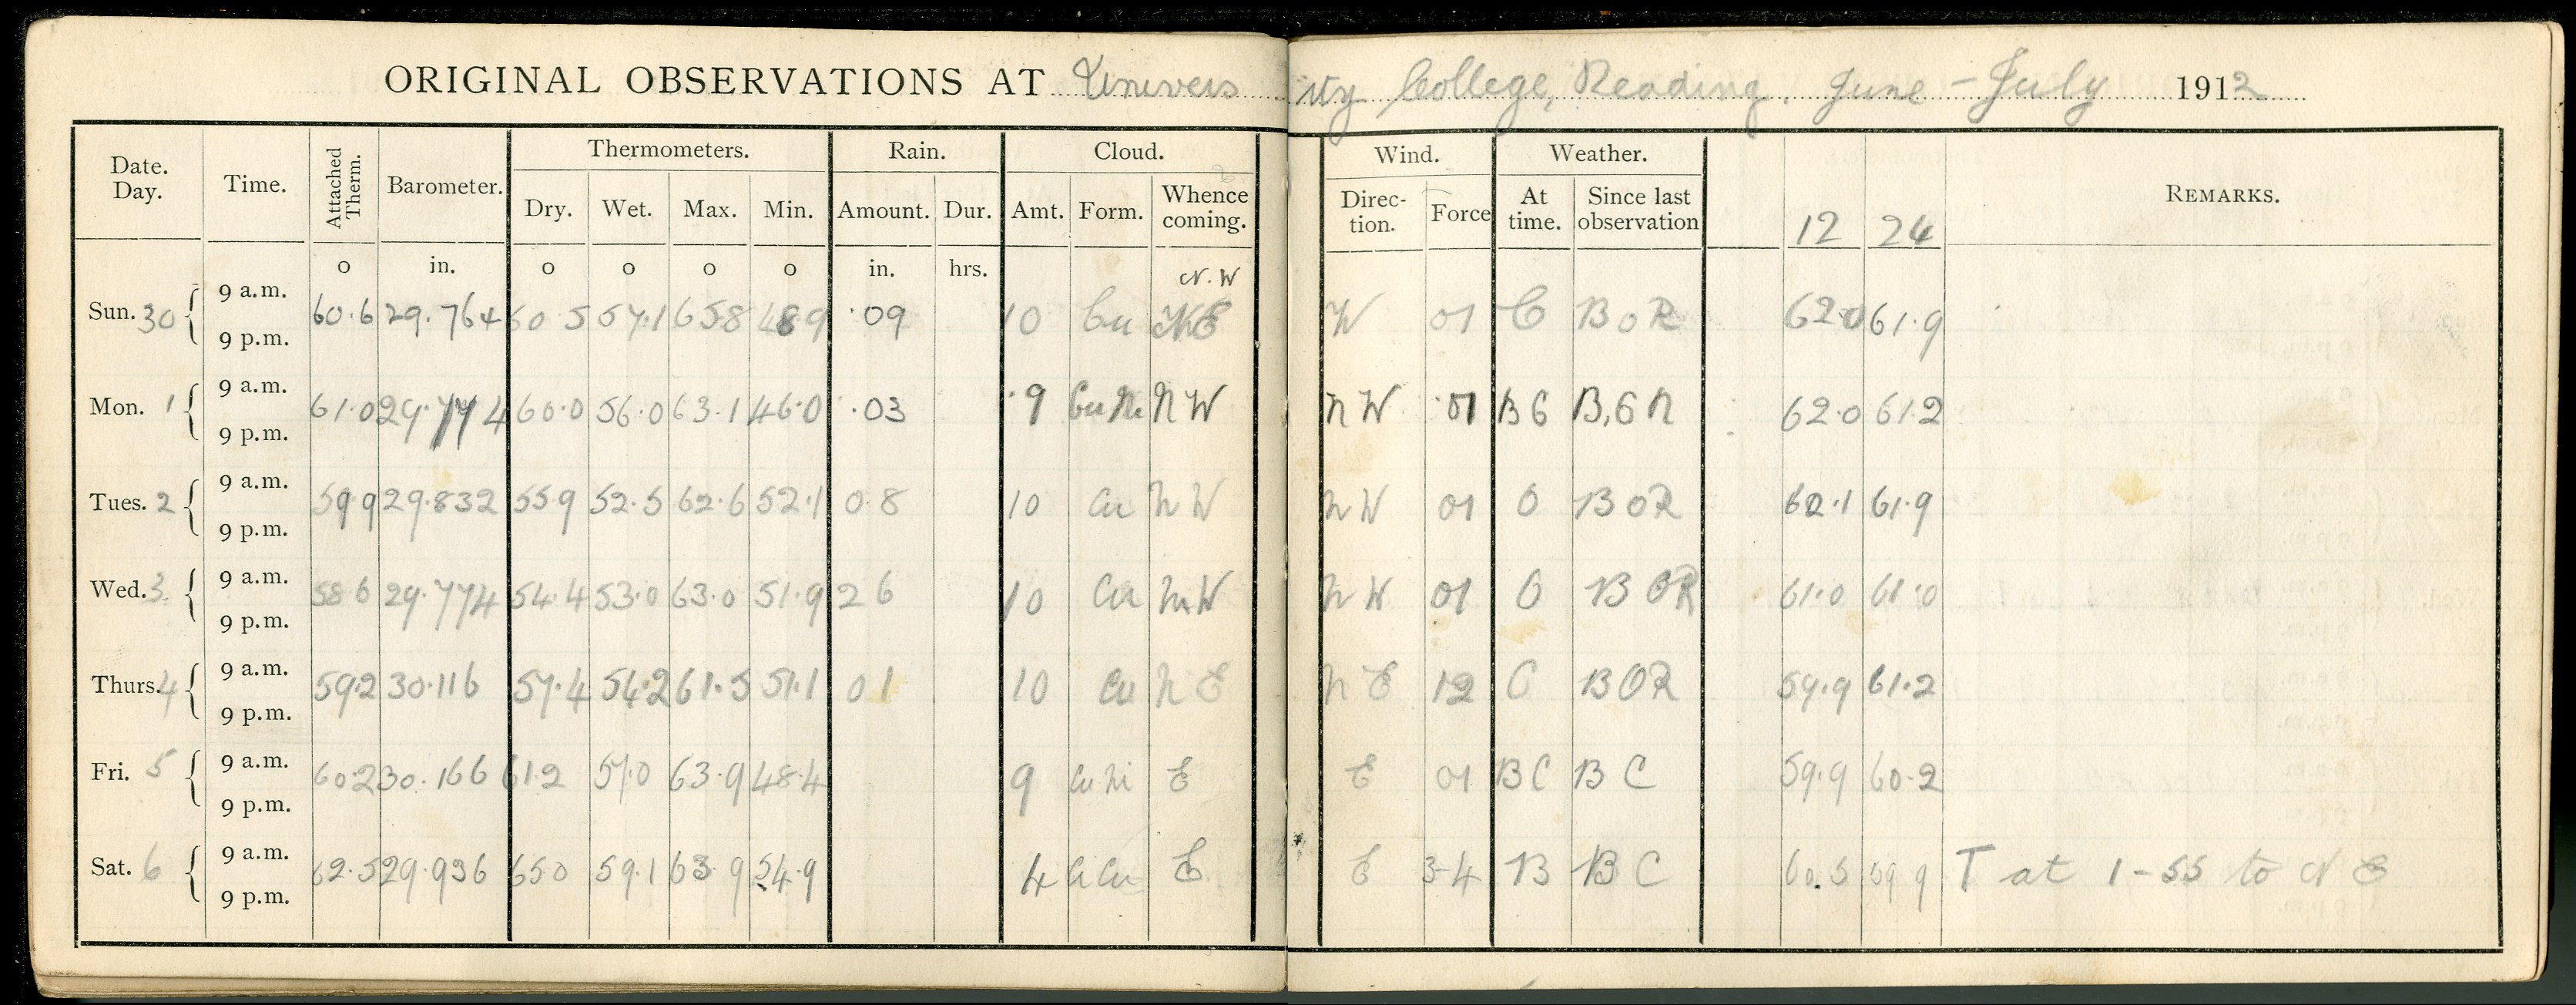 ORIGINAL OBSERVATIONS AT University College, Reading. June - July 1912
Date. Day. Time. Attached Therm. Barometer. Thermometers. Rain. Cloud. Wind. Weather. REMARKS.
Dry. Wet. Max. Min. Amount. Dur. Amt. Form. Whence coming. Direc- tion. Force At time. Since last observation 12 24
o in. o o o o in. hrs.
N.W
9 a.m.
Sun. 30 60.6 29.764 60 5 57.1 65 8 48 9 .09 10 Cu NE W 01 C B O R 62.0 61.9
9 p.m.
9 a.m.
Mon. 1 61.0 29.774 60.0 56.0 63.1 46.0 .03 9 Cu Ni N W N W 01 B C B, C R 62.0 61.2
9 p.m.
9 a.m.
Tues. 2 59 9 29.832 55 9 52.5 62.6 52.1 0.8 10 Cu N W N W 01 O B O R 62.1 61.9
9 p.m.
9 a.m.
Wed. 3 58 6 29.774 54.4 53.0 63.0 51.9 2 6 10 Cu N W N W 01 O B O R 61.0 61.0
9 p.m.
9 a.m.
Thurs. 4 59.2 30.116 57.4 54.2 61.5 51.1 0 1 10 Cu N E N E 12 C B O R 59.9 61.2
9 p.m.
9 a.m.
Fri. 5 60.2 30.166 61.2 57.0 63.9 48.4 9 Cu Ni E E 01 B C B C 59.9 60.2
9 p.m.
9 a.m.
Sat. 6 62.5 29.936 65 0 59.1 63 9 54.9 4 Ci Cu E E 3-4 B B C 60.5 59 9 T at 1-55 to N E
9 p.m.